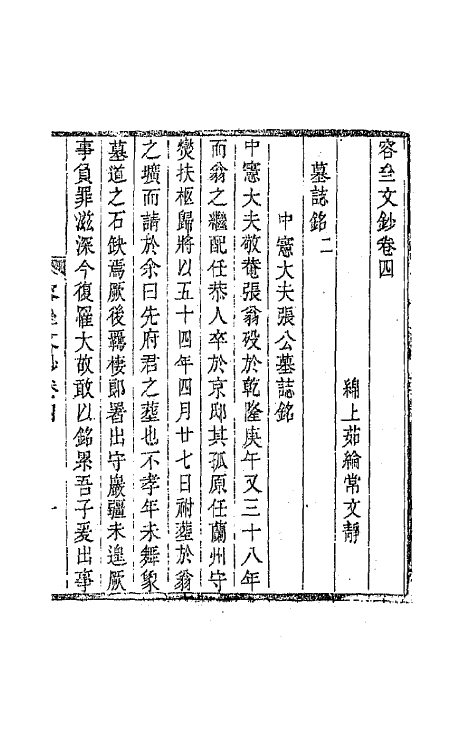 容坙文鈔卷四
綿上茹綸常文靜
墓誌銘二
中憲大夫張公墓誌銘
中憲大夫敬菴張翁歿於乾隆庚午又三十八年
而翁之繼配任恭人卒於京邸其孤原任蘭州守
燮扶柩歸將以五十四年四月廿七日祔葬於翁
之壙而請於余曰先府君之葬也不孝年未舞象
墓道之石缺焉厥後羇棲郎署出守巖疆未遑厥
事負罪滋深今復罹大故敢以銘累吾子爰出事
文鈔卷四
一